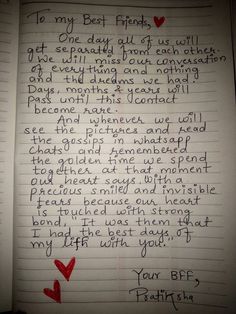 To my Best Friends,
One day all of us will
get separated from each other.
We will miss our conversation
of everything and nothing
and the dreams we had.
Days, months & years will
pass until this contact
become rare.
And whenever we will
see the pictures and read
the gossips in whatsapp
chats and remembered
the golden time we spend
together at that moment
our heart says with a
precious smile and invisible
tears because our heart
is touched with strong
bond, "It was them that
I had the best days of
my life with you."
Your BFF,
Pratiksha